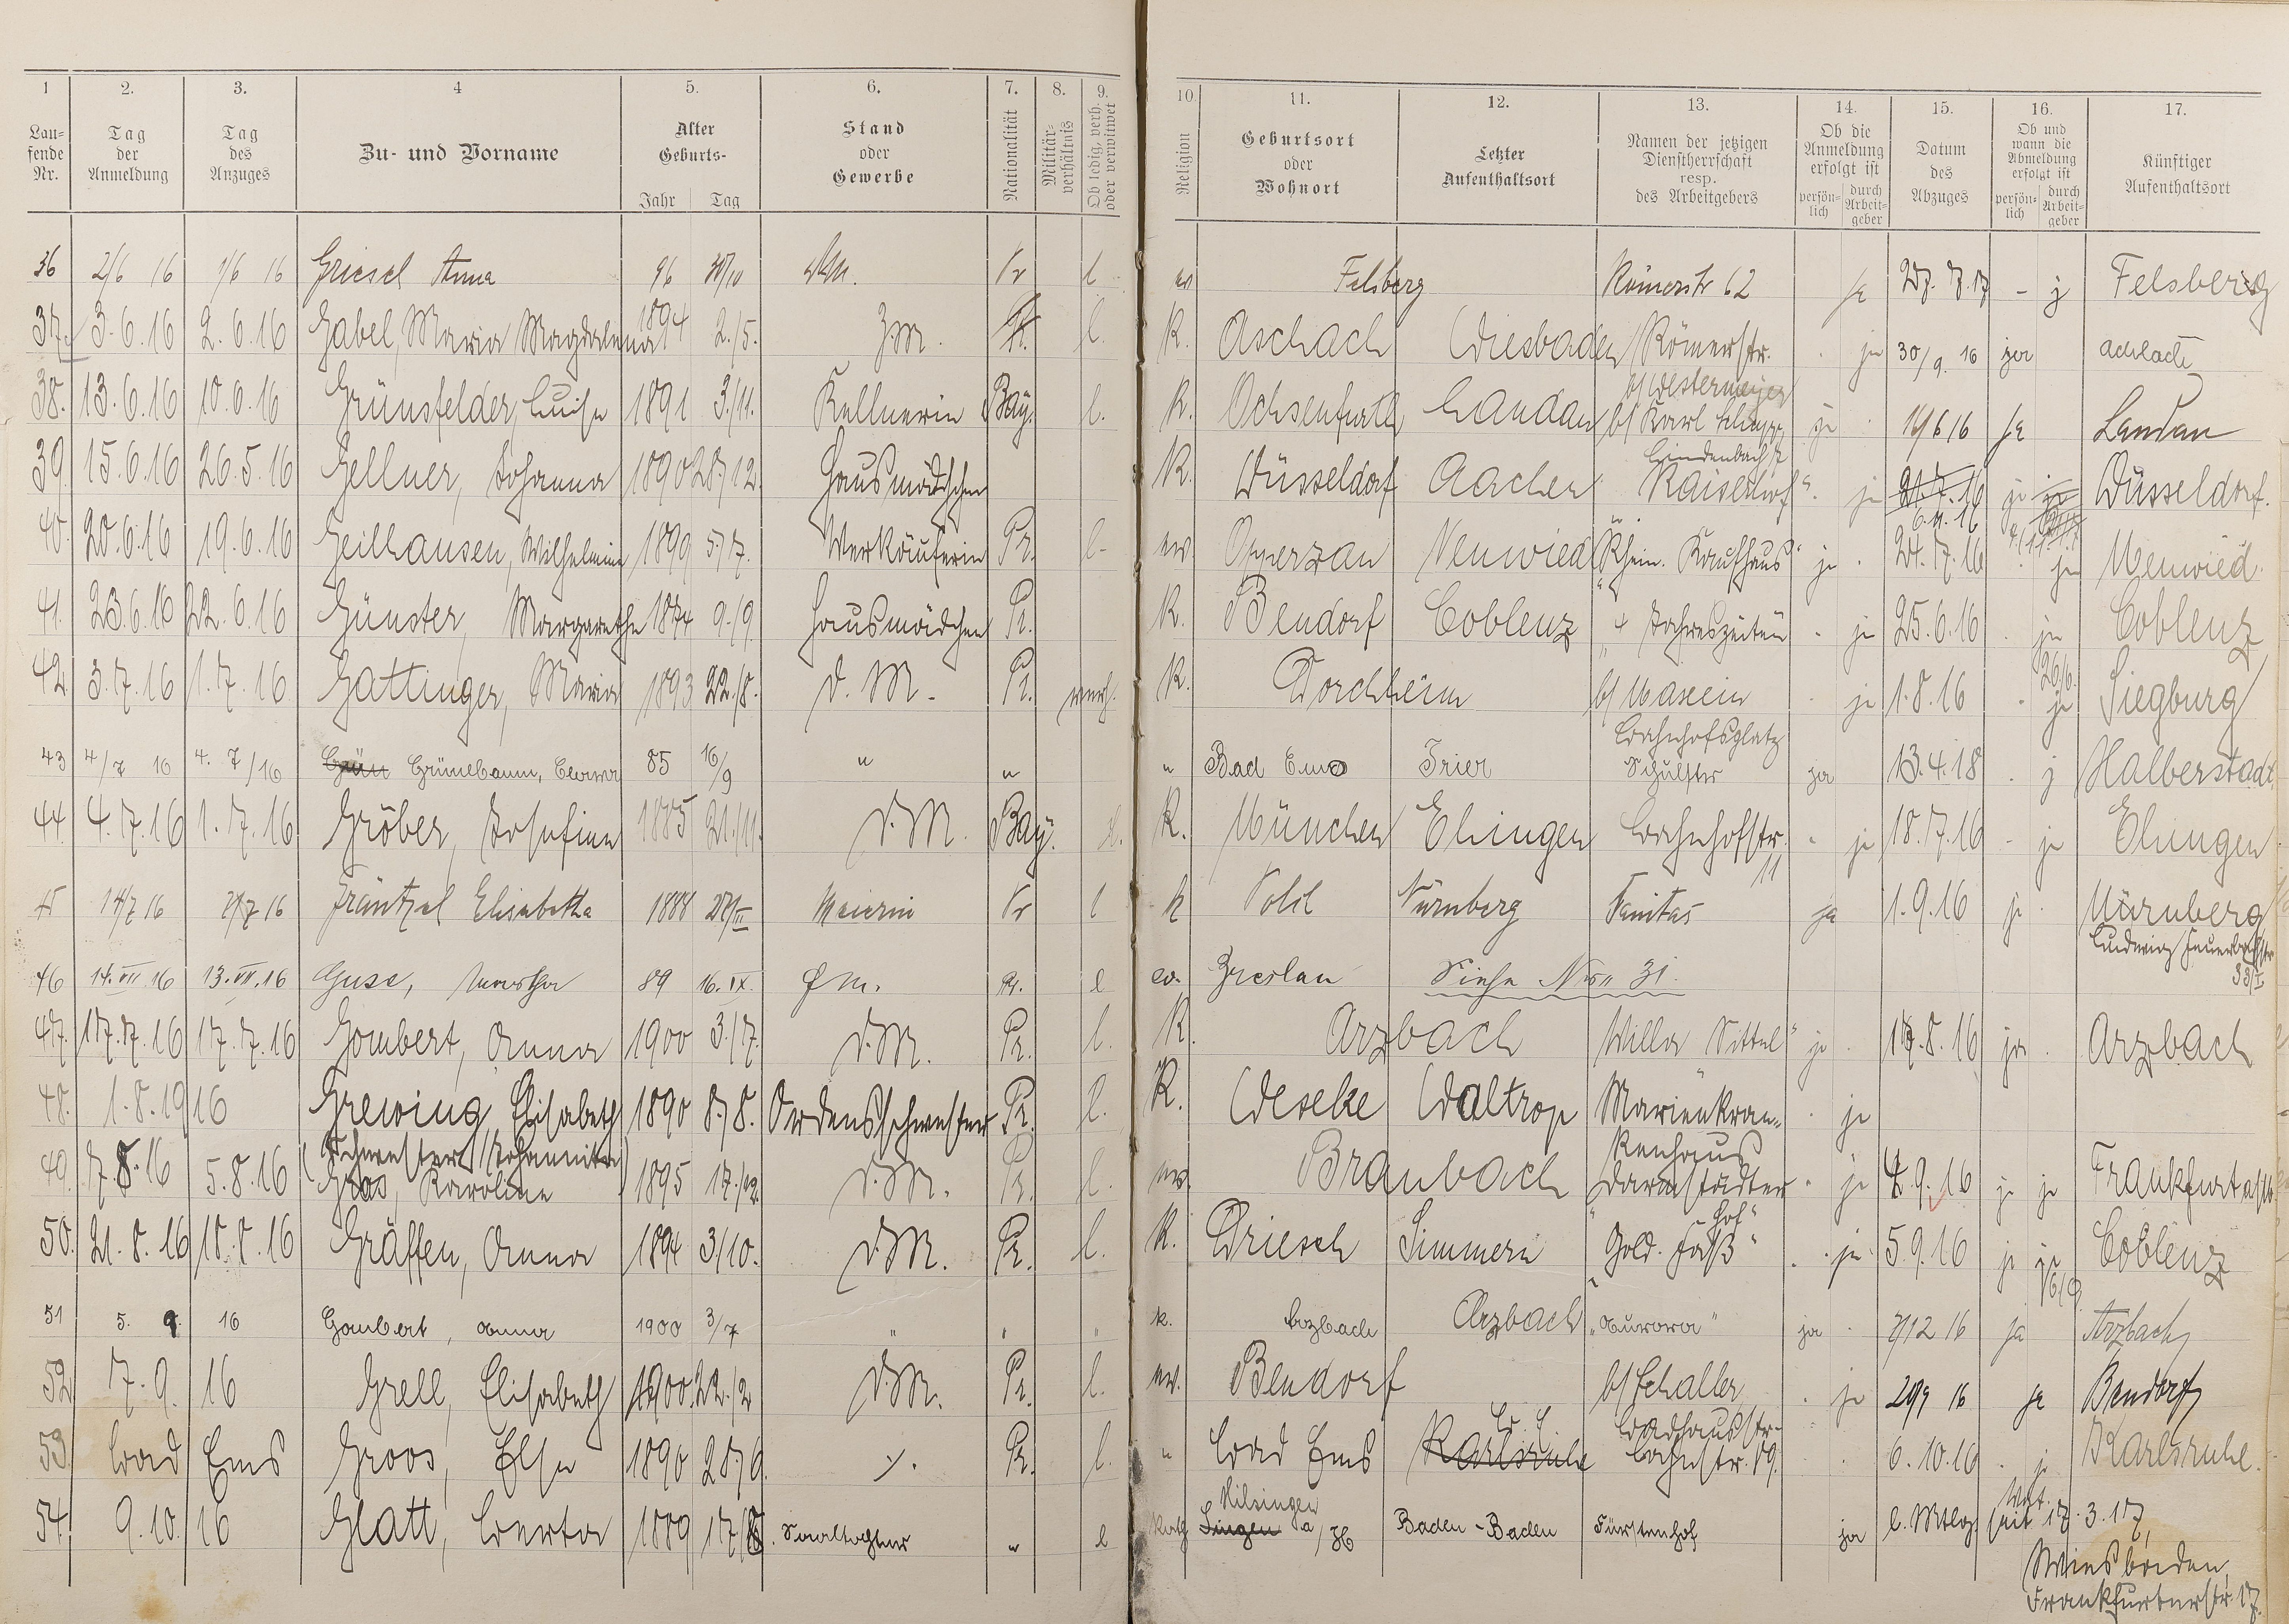 1 2. 3. 4 5. 6. 7. 8. 9. 10. 11. 12. 13. 14. 15. 16. 17.
Lau-
fende
Nr.
Tag
der
Anmeldung
Tag
des
Anzuges
Zu- und Vorname
Alter
Geburts-
Jahr Tag
Stand
oder
Gewerbe
Nationalität
Militär-
verhältnis
Ob ledig, verh.
oder verwitwet
Religion
Geburtsort
oder
Wohnort
Letzter
Aufenthaltsort
Namen der jetzigen
Dienstherrschaft
resp.
des Arbeitgebers
Ob die
Anmeldung
erfolgt ist
persön-
lich
durch
Arbeit-
geber
Datum
des
Abzuges
Ob und
wann die
Abmeldung
erfolgt ist
persön-
lich
durch
Arbeit-
geber
Künftiger
Aufenthaltsort
36 2/6 16 1/6 16 Griesel Anna 96 30/10 Pr l ev Felsberg Römerstr 62 ja 27.7.17 - j Felsberg
37. 3.6.16 2.6.16 Gabel, Maria Magdalena 1894 2./5. Z.M. Pr. l. K. Aschach Wiesbaden Römerstr. ja 30/9. 16 ja Aschach
b/ Westermeyer
38. 13.6.16 10.6.16 Grünsfelder, Luise 1891 3./11. Kellnerin Bay. l. K. Ochsenfurth Landau b/ Karl ja 16 ja Landau
Lindenbach 7
39. 15.6.16 26.5.16 Gellner, Johanna 1890 28./12. Hausmädchen K. Düsseldorf Aachen Kaiserhof". ja 21.7.16 ja ja Düsseldorf.
6.11.16
40. 20.6.16 19.6.16 Geilhausen, Wilhelmine 1899 5./7. Verkäuferin Pr. l- ev. Neuwied "Rhein. Kaufhaus" ja 24.7.16 ja Neuwied.
41. 23.6.16 22.6.16 Günster, Margarethe 1874 9./9. Hausmädchen Pr. K. Bendorf Coblenz "4 Jahreszeiten ja 25.6.16 ja Coblenz
26/6.
42. 3.7.16 1.7.16 Gattinger, Maria 1893 22./8. D.M. Pr. verh. K. Dorchheim b/ ja 1.8.16 ja Siegburg
Bahnhofsplatz
43 4/7 16 4.7/16 Grün Grünebaum, 85 16/9 " " " Bad Ems Trier Schulstr ja 13.4.18 . j Halberstadt
44. 4.7.16 1.7.16 Gröber, Josefine 1885 21./11. D.M. Bay. l. K. München Ehingen Bahnhofstr. ja 18.7.16 - ja Ehingen
11
45 14/7 16 16 Gräntzel Elisabetha 1888 Pr l k Nürnberg ja 1.9.16 ja Nürnberg
Ludwig Feuerbachstr
33/I
46 14.VII.16 13.VII.16 Guse, Martha 89 16.IX. Pr. l ev. Breslau Siehe Nro 31.
47. 17.7.16 17.7.16 Gombert, Anna 1900 3./7. D.M. Pr. l. K. Arzbach Villa ja 17.8.16 ja Arzbach
48. 1.8.1916 Grewing, Elisabeth 1890 8./8. Ordensschwester Pr. l. K. Weseke Waltrop Marienkran- ja
(Schwester Johannita) kenhaus
49. 7.8.16 5.8.16 Gras, Karoline 1895 17./12. D.M. Pr. l. ev. Braubach "Darmstädter ja 4.9.16 ja ja Frankfurt a/M.
Hof"
50. 21.8.16 18.8.16 Gräffen, Anna 1894 3/10. D.M. Pr. l. K. Driesch Simmern "Gold. Faß" ja 5.9.16 ja ja Coblenz
51 5. 9. 16 Gombert, Anna 1900 3/7 " " " k. Arzbach Arzbach "Aurora" ja 7/12 16 ja Arzbach
52. 7.9. 16 Grell, Elisabeth 1900. 22./2 D.M. Pr. l. ev. Bendorf b/ Schaller ja 16 ja Bendorf
Badhausstr.
53. Bad Ems Groos, Else 1890 28./6. Pr. l. " Bad Ems Karlsruhe Bahnstr. 19. 6.10.16 . j Karlsruhe.
54. 9.10. 16 Glatt, Berta 1889 17/ Saaltochter " l Kath Hilsingen
Singen a/H Baden-Baden Fürstenhof ja seit 17.3.17,
Wiesbaden,
Frankfurterstr. 17.